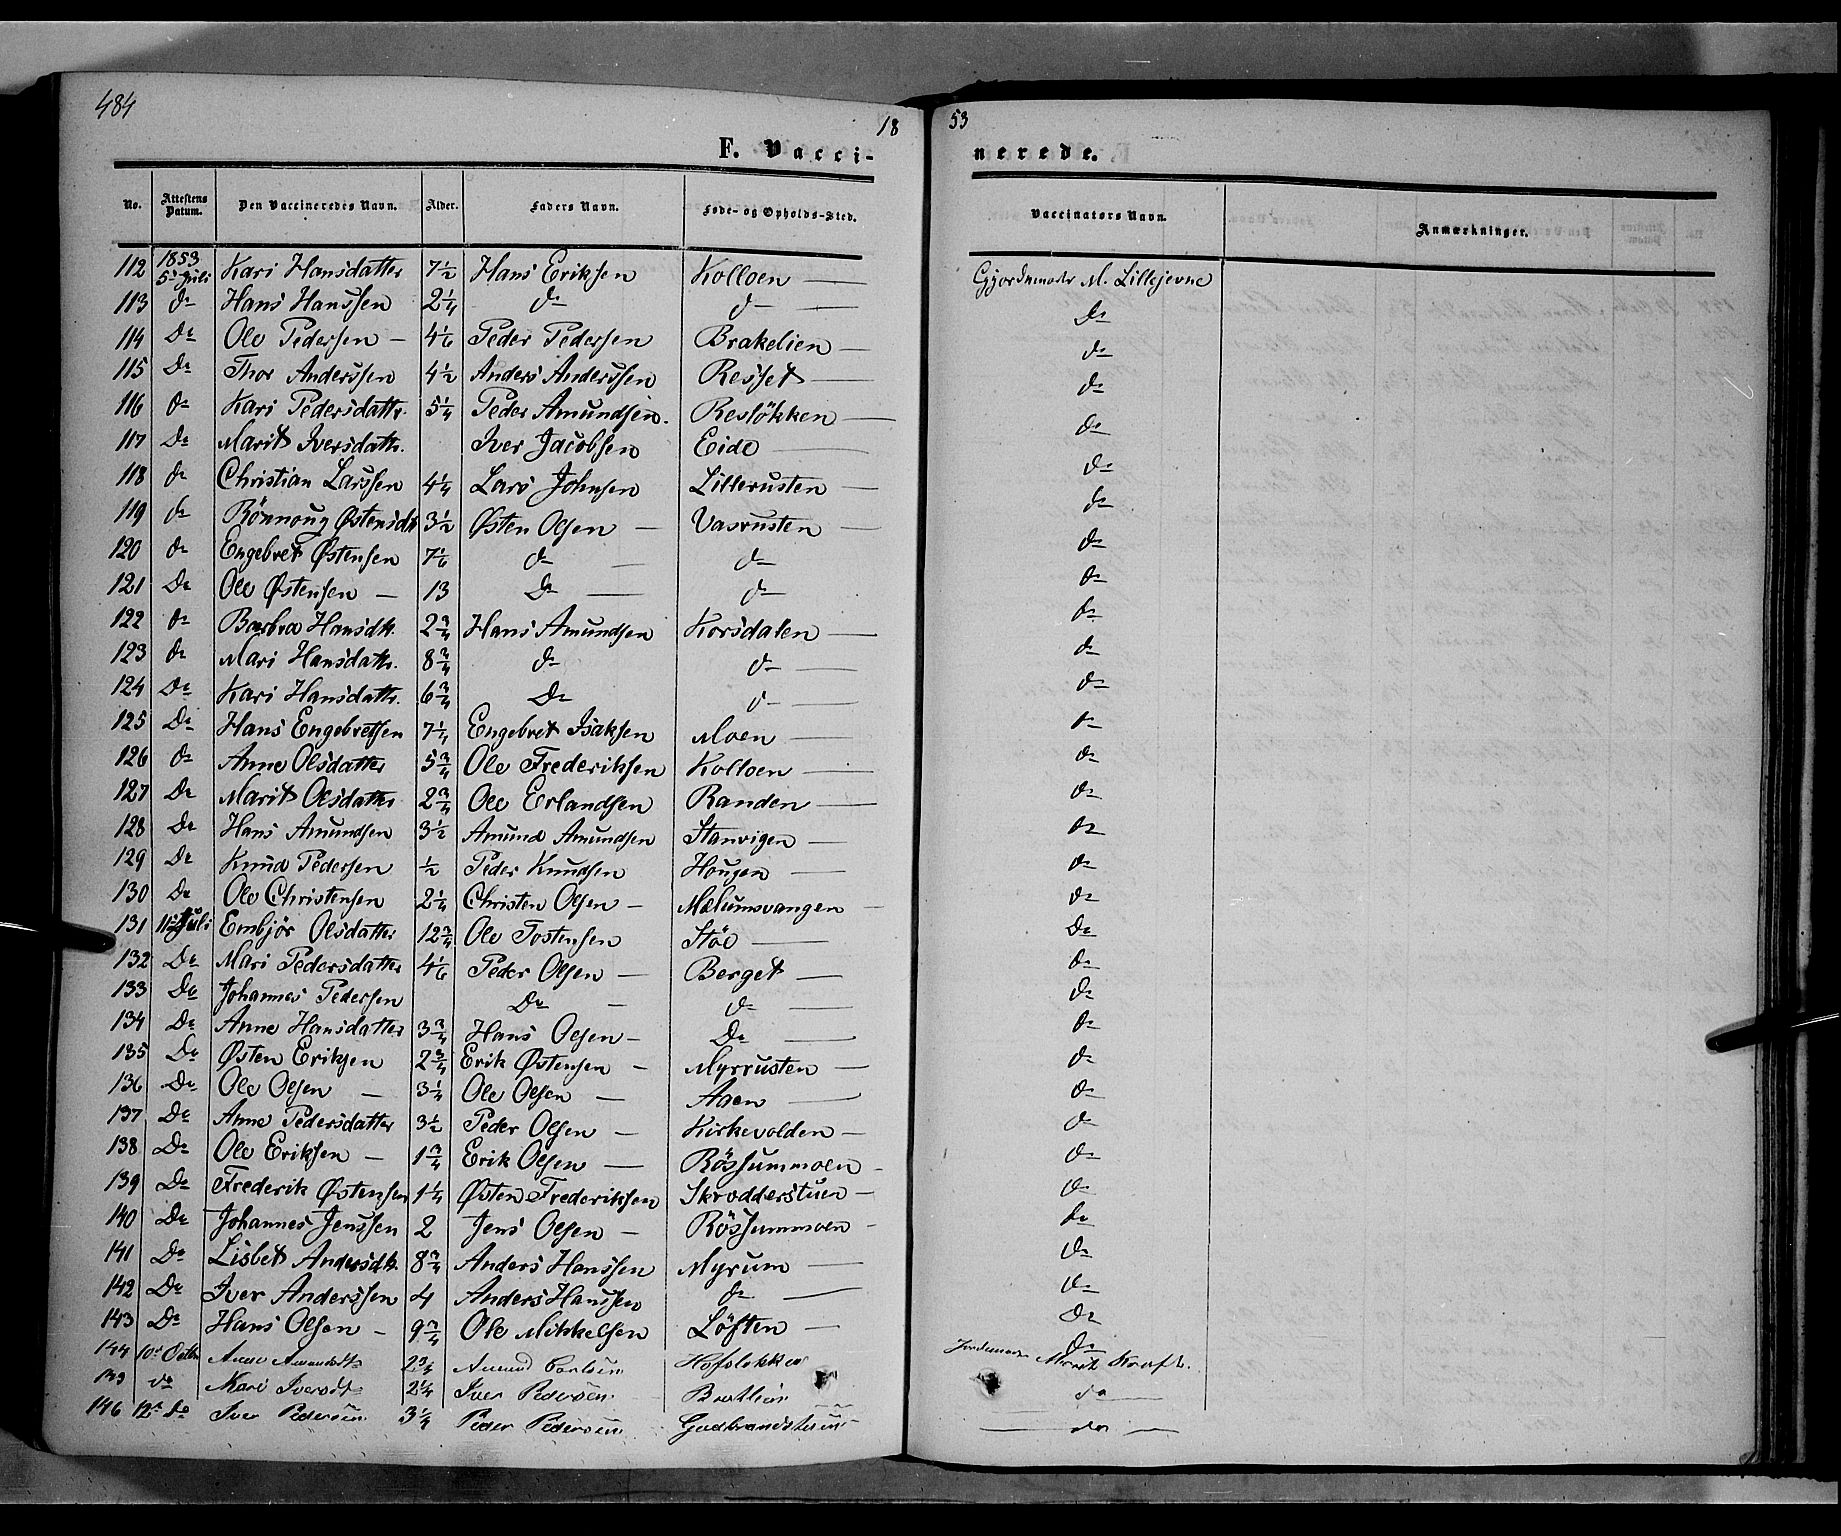 484
18 53
F. Vacci- nerede.
No. Attestens Datum. Den Vaccineredes Navn. Alder. Faders Navn. Føde- og Opholds-Sted. Vaccinators Navn. Anmærkninger.
112 1853 5te Juli Kari Hansdatter 7 1/2 Hans Eriksen Kolloen — M. Lillejevne
113 do Hans Hanssen 2 1/4 do do — Do
114 Do Ole Pedersen — 4 1/6 Peder Pedersen Brakelien — do
115 Do Thor Anderssen 4 1/2 Anders Anderssen Resset — do
116 do Kari Pedersdattr. 5 1/4 Peder Amundsen. Resløkken — do
117 Do Marit Iversdattr. Iver Jacobsen Eide — do
118 do Christian Larssen 4 1/4 Lars Johnsen Lillerusten — do
119 do Rønnoug Østensdtr 3 1/2 Østen Olsen — Vasrusten — do
120 do Engebret Østensen 7 1/6 do — do do
121 Do Ole Østensen — 13 Do — do do
122 do Barbra Hansdtr. 2 3/4 Hans Amundsen Korsdalen — do
123 do Mari Hansdattr. 8 3/4 do do — do
124 Do Kari Hansdattr. 6 3/4 Do do — do
125 Do Hans Engebretsen 7 1/4 Engebret Isaksen Moen — do
126 do Anne Olsdatter 5 3/4 Ole Frederiksen Kolloen — do
127 Do Marit Olsdatter 2 3/4 Ole Erlandsen Randen — do
128 Do Hans Amundsen 3 1/2 Amund Amundsen Stanvigen — do
129 Do Knud Pedersen 1/2 Peder Knudsen Hougen — do
130 Do Ole Christensen 2 1/4 Christen Olsen — Mælumsvangen — do
131 11te Juli Embjør Olsdatter 12 3/4 Ole Tostensen Støe — Do
132 Do Mari Pedersdatter 4 1/6 Peder Olsen — Berget — do
133 Do Johannes Pedersen Do — do — do
134 Do Anne Hansdatter 3 3/4 Hans Olsen — Do — do
135 Do Østen Eriksen 2 3/4 Erik Østensen — Myrrusten — do
136 Do Ole Olsen — 3 1/4 Ole Olsen — Aaen — do
137 Do Anne Pedersdatter 3 1/2 Peder Olsen — Kirkevolden — do
138 Do Ole Eriksen — 1 3/4 Erik Olsen — Røssummoen — do
139 Do Frederik Østensen 1 1/4 Østen Frederiksen Skrædderstuen — do
140 Do Johannes Jenssen 2 Jens Olsen — Røssummoen — do
141 Do Lisbet Andersdtr. 8 3/4 Anders Hanssen Myrum — do
142 Do Iver Anderssen 4 Anders Hanssen do — do
143 Do Hans Olsen — 9 3/4 Ole Mikkelsen Løften — do
144 10de Octbr Anne Amundsdtr 2 3/4 Amund Carlsen Hofsløkken Do Marit Kraft.
145 do Mari Iversdtr 2 1/4 Iver Pedersen Bratlien do —
146 12te Do Iver Pedersen 3 1/4 Peder Pedersen Gudbrandstuen — do —